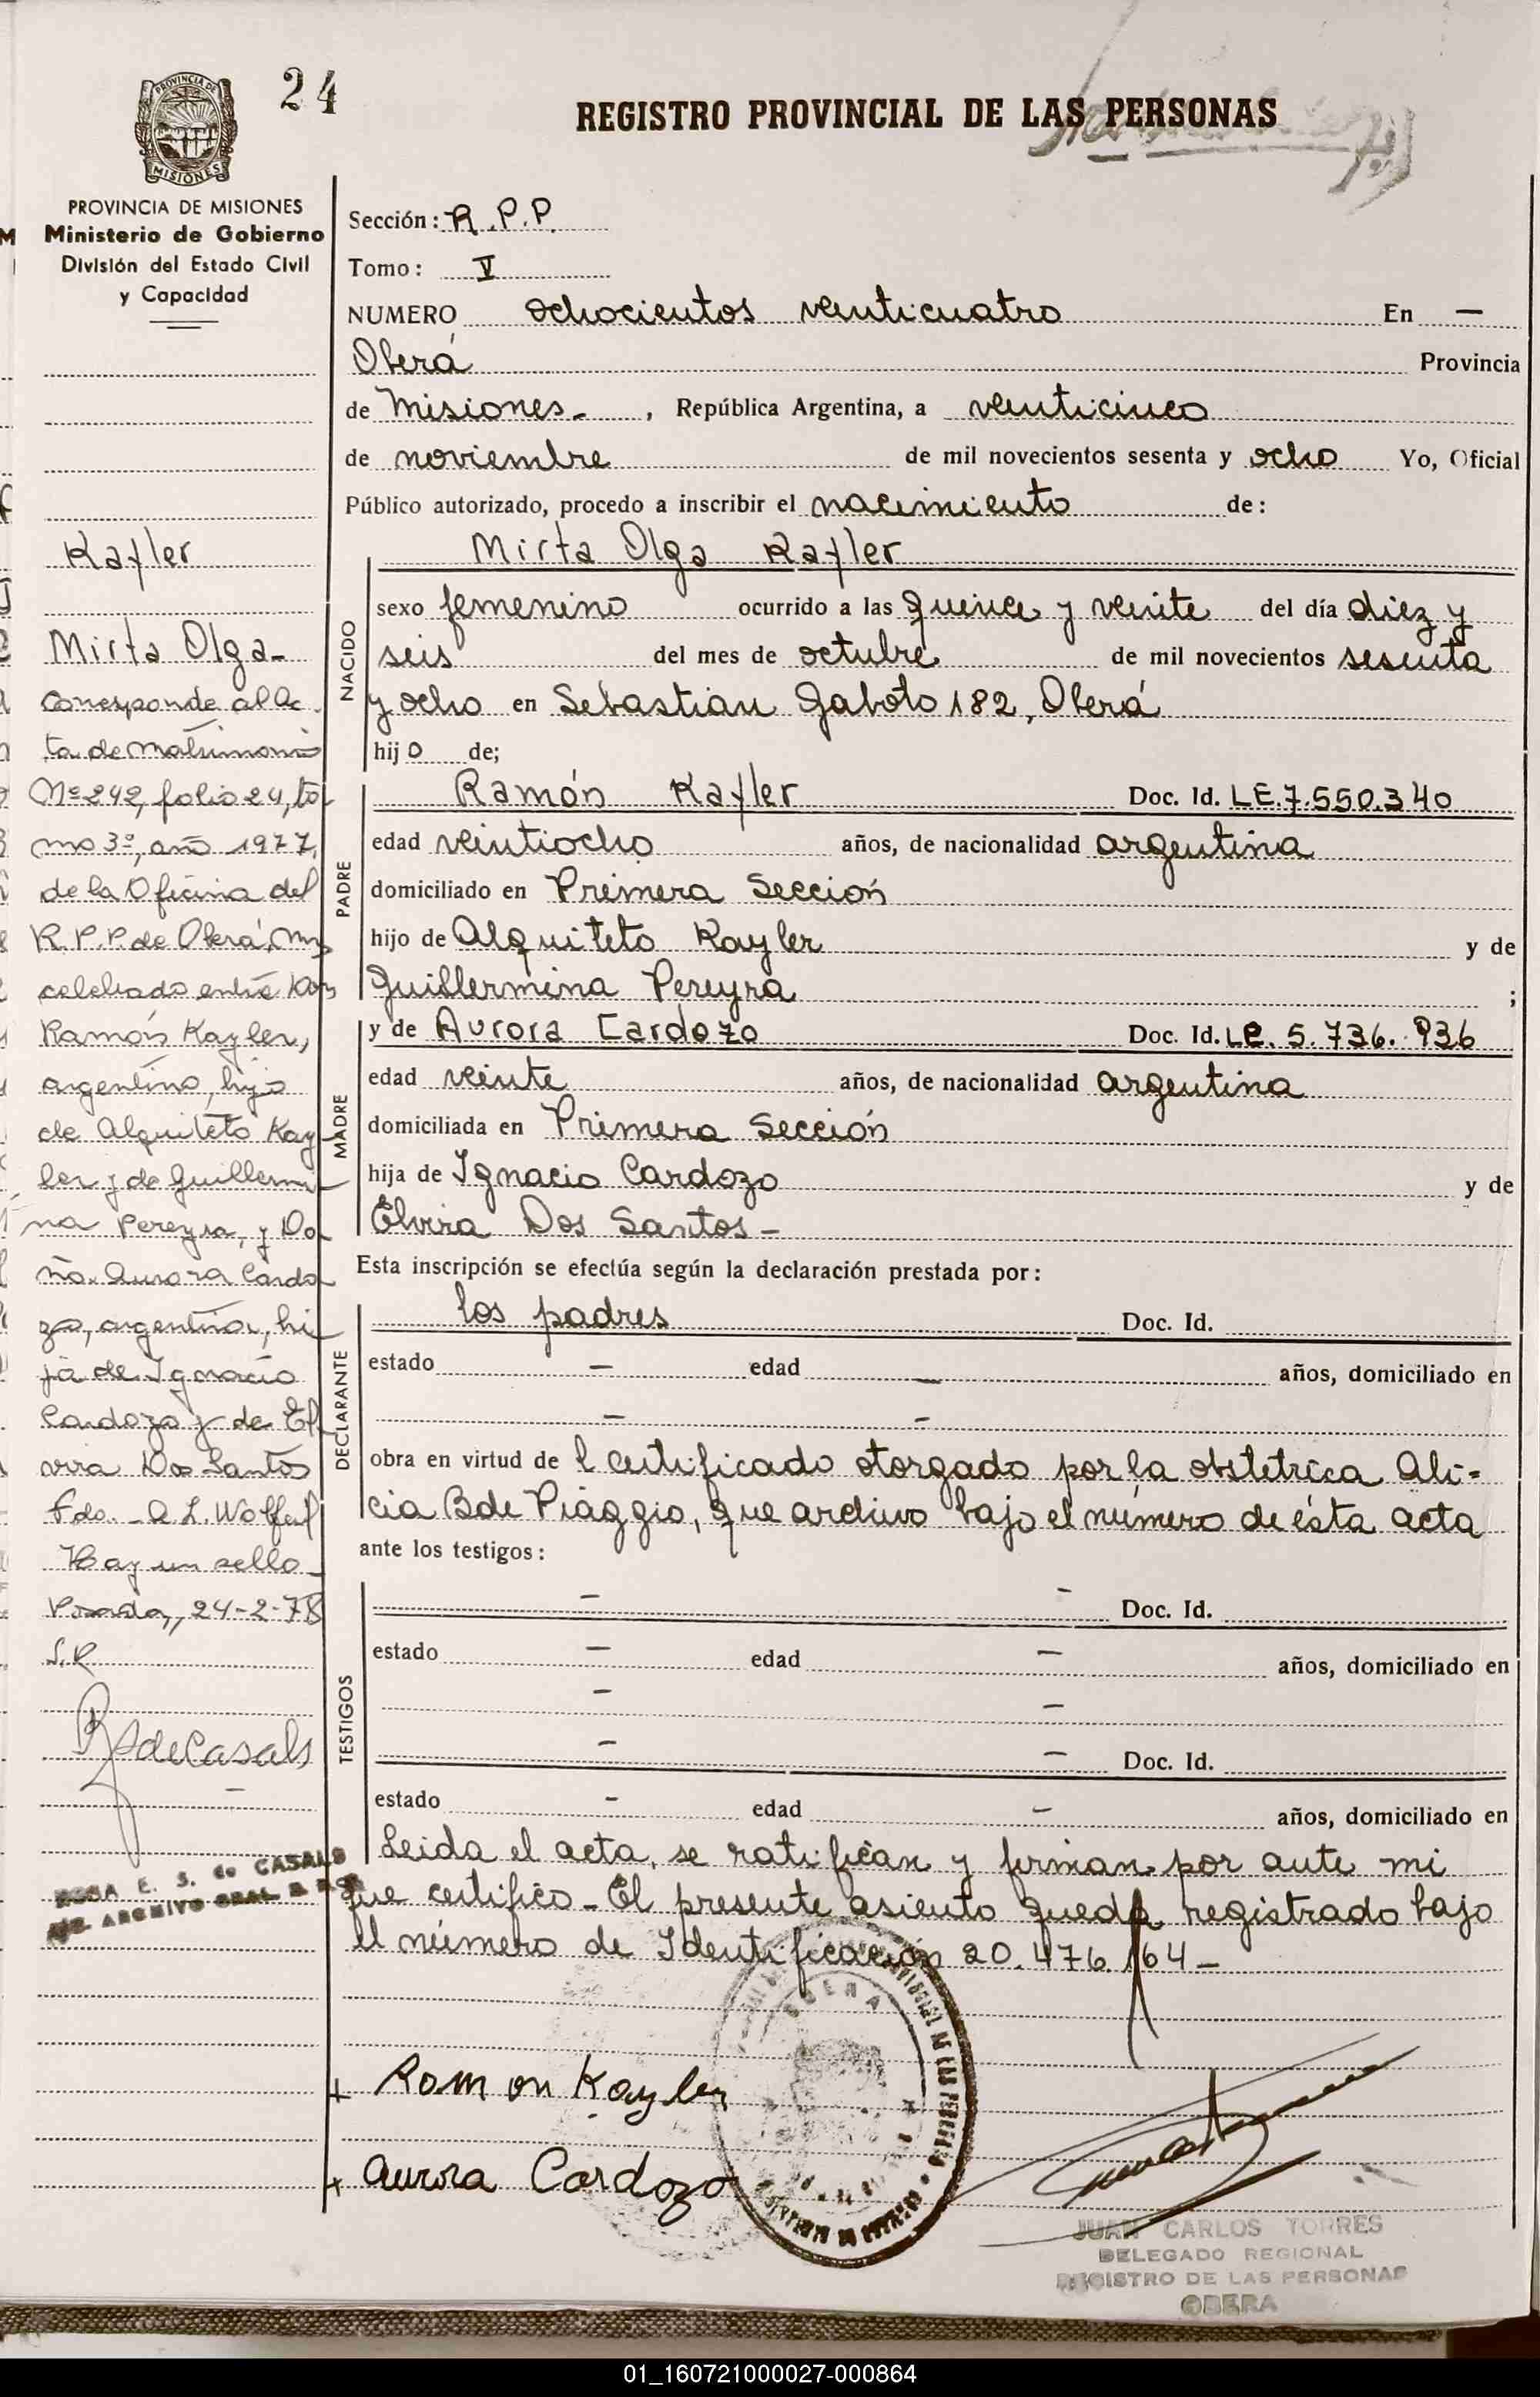 24
REGISTRO PROVINCIAL DE LAS PERSONAS
PROVINCIA DE
MISIONES
PROVINCIA DE MISIONES
Ministerio de Gobierno
División del Estado Civil
y Capacidad
Kayler
Mirta Olga-
Corresponde al Ac
ta de Matrimonio
Nº 242, folio 24, to
mo 3º, año 1977,
de la Oficina del
R.P.P. de Oberá, Mns
celebrado entre Don
Ramón Kayler,
argentino, hijo
de Alquiteto Kay
ler y de Guillermi
na Pereyra, y Do
ña Aurora Cardo
zo, argentina, hi
ja de Ignacio
Cardozo y de El
vira Dos Santos
Fdo. - A L.
Hay un sello
Posadas, 24-2-78
S.R
RSdeCasals
ROSA E. S. de CASALS
ARCHIVO GRAL
Sección: R.P.P.
Tomo: V
NUMERO ochocientos veinticuatro En —
Oberá Provincia
de Misiones-, República Argentina, a veinticinco
de noviembre de mil novecientos sesenta y ocho Yo, Oficial
Público autorizado, procedo a inscribir el nacimiento de:
Mirta Olga Kayler
NACIDO
sexo femenino ocurrido a las quince y veinte del día diez y
seis del mes de octubre de mil novecientos sesenta
y ocho en Sebastian Gaboto 182, Oberá
hijo de;
PADRE
Ramón Kayler Doc. Id. LE.7.550.340
edad veintiocho años, de nacionalidad argentina
domiciliado en Primera Sección
hijo de Alquiteto Kayler y de
Guillermina Pereyra ;
MADRE
y de Aurora Cardozo Doc. Id. LC. 5.736.936
edad veinte años, de nacionalidad argentina
domiciliada en Primera Sección
hija de Ignacio Cardozo y de
Elvira Dos Santos -
Esta inscripción se efectúa según la declaración prestada por:
DECLARANTE
los padres Doc. Id.
estado — edad — años, domiciliado en
— —
obra en virtud de l certificado otorgado por la obstetrica Ali=
cia B de Piaggio, que archivo bajo el número de ésta acta
ante los testigos:
TESTIGOS
— — Doc. Id.
estado — edad — años, domiciliado en
— —
— — Doc. Id.
estado — edad — años, domiciliado en
Leida el acta, se ratifican y firman por ante mi
que certifico - El presente asiento queda registrado bajo
el número de Identificación 20.476.164 -
+ Ramon Kayler
+ Aurora Cardozo
OBERA
JUAN CARLOS TORRES
DELEGADO REGIONAL
REGISTRO DE LAS PERSONAS
OBERA
01_160721000027-000864